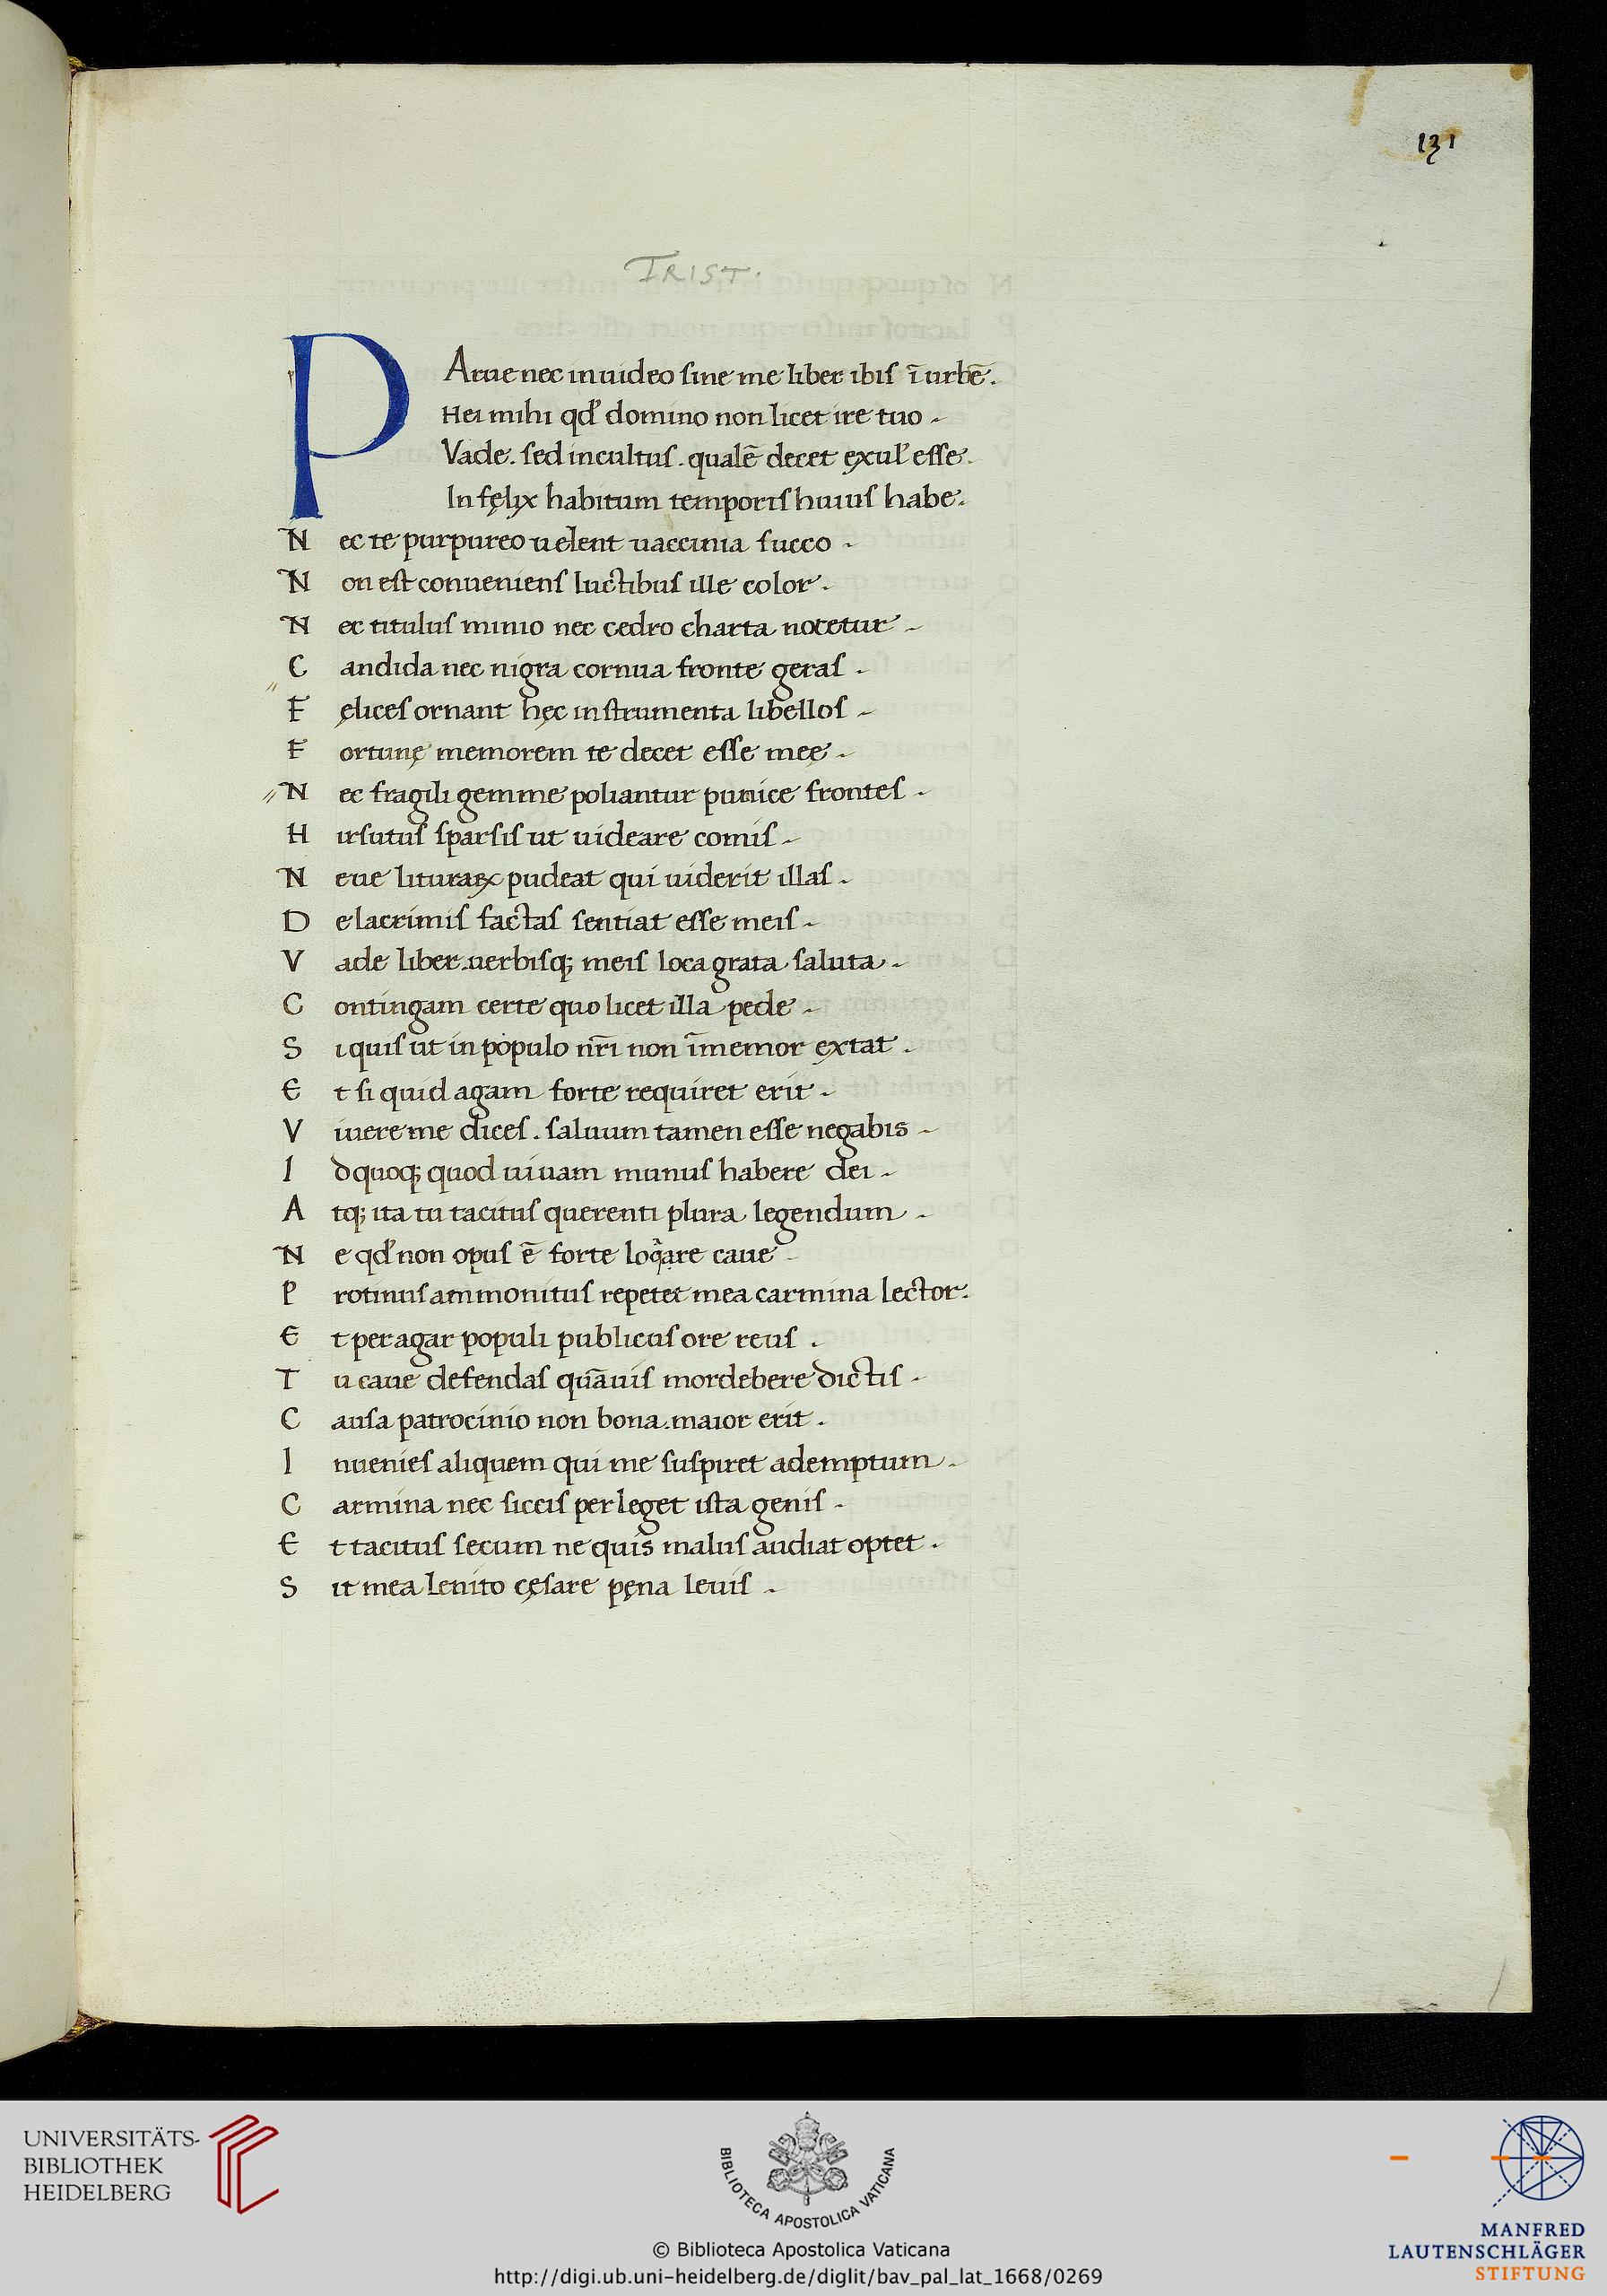 131
TRIST.
PArue nec inuideo sine me liber ibis ī urbē.
Hei mihi qđ domino non licet ire tuo.
Vade. sed incultus. qualē decet exul' esse.
Infęlix habitum temporis huius habe.
Nec te purpureo uelent uaccinia succo.
Non est conueniens luctibus ille color.
Nec titulus minio nec cedro charta notetur.
Candida nec nigra cornua fronte geras.
Fęlices ornant hęc instrumenta libellos.
Fortunę memorem te decet esse meę.
Nec fragili gemme poliantur pumice frontes.
Hirsutus sparsis ut uideare comis.
Neue liturarꝝ pudeat qui uiderit illas.
De lacrimis factas sentiat esse meis.
Vade liber. uerbisq; meis loca grata saluta.
Contingam certe quo licet illa pede.
Siquis ut in populo nr̄i non īmemor extat.
Et si quid agam forte requiret erit.
Viuere me dices. saluum tamen esse negabis.
Id quoq; quod uiuam munus habere dei.
Atq; ita tu tacitus querenti plura legendum.
Ne qđ non opus ē forte loq̄are caue.
Protinus ammonitus repetet mea carmina lector.
Et peragar populi publicus ore reus.
Tu caue defendas quāuis mordebere dictis.
Causa patrocinio non bona. maior erit.
Inuenies aliquem qui me suspiret ademptum.
Carmina nec siccis perleget ista genis.
Et tacitus secum ne quis malus audiat optet.
Sit mea lenito cęsare pęna leuis.
UNIVERSITÄTS-
BIBLIOTHEK
HEIDELBERG
BIBLIOTECA APOSTOLICA VATICANA
© Biblioteca Apostolica Vaticana
http://digi.ub.uni-heidelberg.de/diglit/bav_pal_lat_1668/0269
MANFRED
LAUTENSCHLÄGER
STIFTUNG